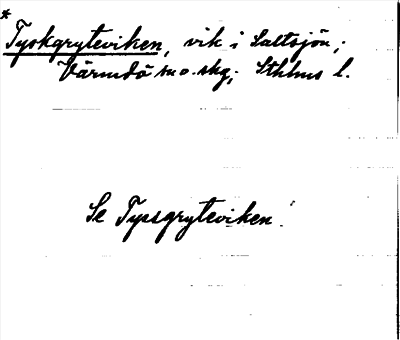 *
Tyskgryteviken, vik i Saltsjön;
Värmdö sn o. skg; Sthlms l.
Se Tyssgryteviken.